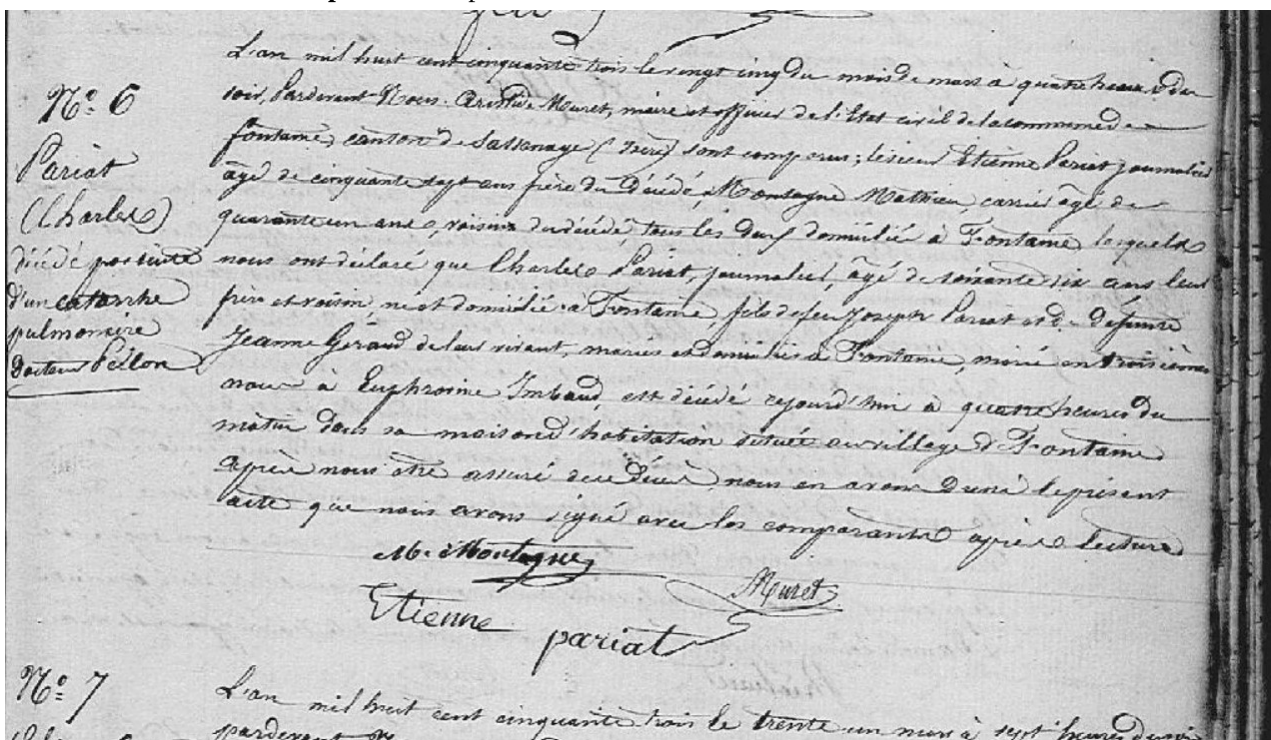 N.º 6
Pariat
(Charles)
décédé par suite
d'un catarrhe
pulmonaire
docteur Peilon
L'an mil huit cent cinquante trois le vingt cinq du mois de mars a quatre heures du
soir, Pardevant Nous Aristide Muret, maire et officier de l'Etat civil de la commune de
fontaine, canton de Sassenage (Isère) sont comparus; le sieur Etienne Pariat journalier
âgé de cinquante sept ans frère du décédé, Montagne Mathieu, carrier âgé de
quarante un ans voisin du décédé tous les deux domicilié à Fontaine lesquels
nous ont déclaré que Charles Pariat, journalier, âgé de soixante six ans leur
frère et voisin, né et domicilié à Fontaine, fils de feu Joseph Pariat et de défunte
Jeanne Géraud de leur vivant, mariés et domiciliés à Fontaine, marié en troisième
noces à Euphrosine Imbaud est décédé cejourd'hui à quatre heures du
matin dans sa maison d'habitation située au village de Fontaine
Après nous être assuré de ce décès, nous en avons dressé le présent
acte que nous avons signé avec les comparants après lecture
M. Montagne
Muret
Etienne pariat
N.º 7
L'an mil huit cent cinquante trois le trente un mars à sept heures du soir
pardevant